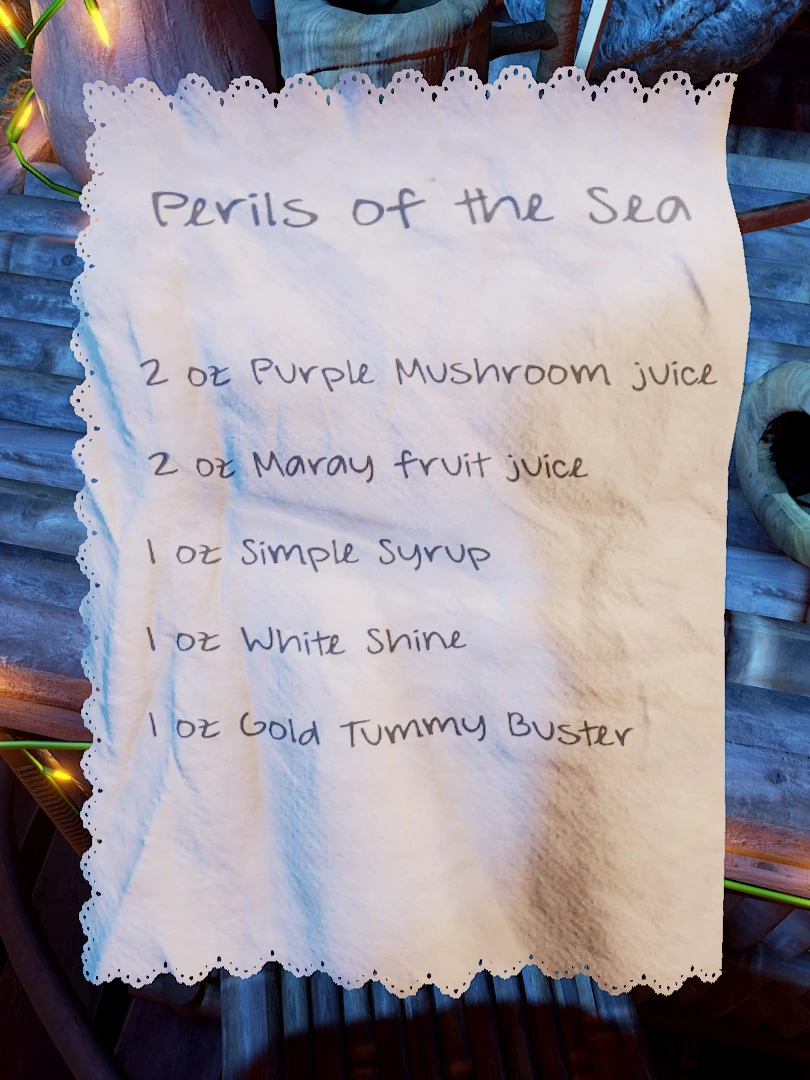 Perils of the Sea
2 oz Purple Mushroom juice
2 oz Maray fruit juice
1 oz Simple Syrup
1 oz White Shine
1 oz Gold Tummy Buster